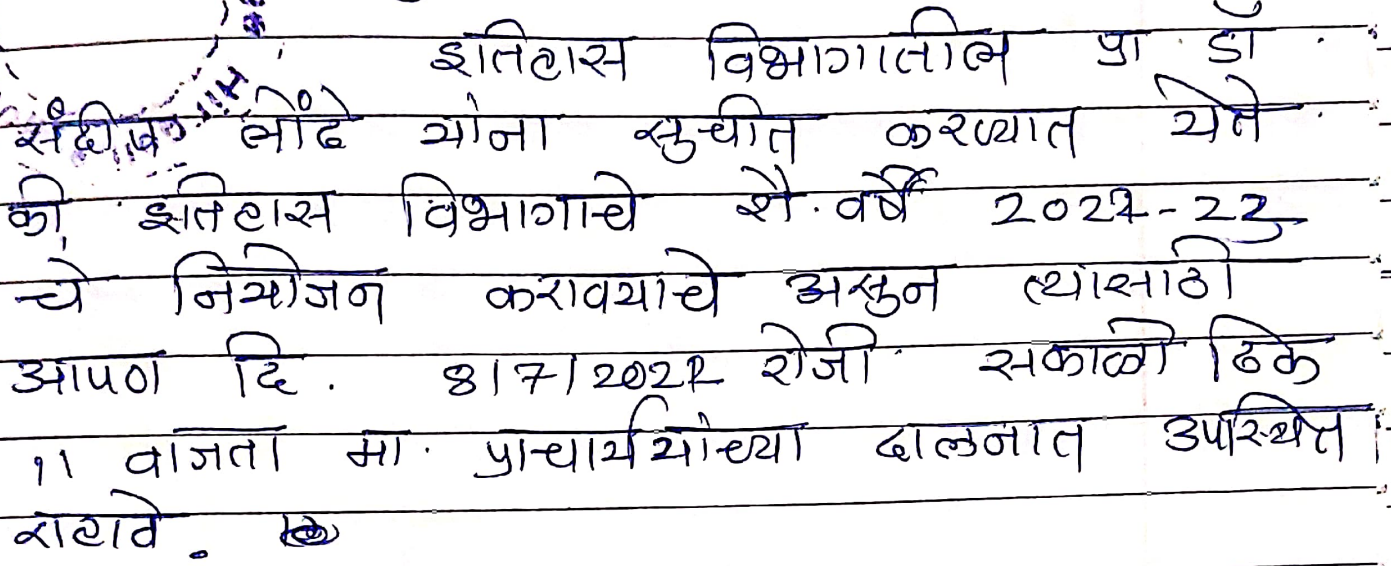 इतिहास विभागातील प्रा. डॉ.
संदीप लोंढे यांना सुचीत करण्यात येते
की, इतिहास विभागाचे शै. वर्षे 2022-23
चे नियोजन करावयाचे असुन त्यासाठी
आपण दि. 8/7/2022 रोजी सकाळी ठिक
११ वाजता मा. प्राचार्य यांच्या दालनात उपस्थित
राहावे.